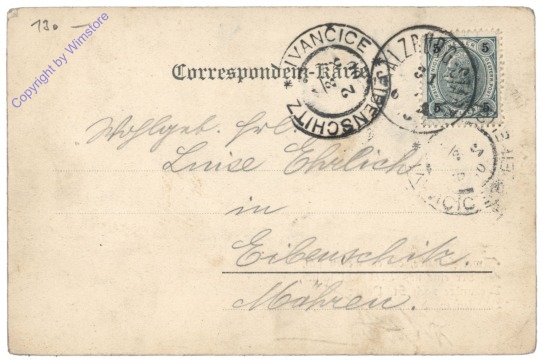 130.-
Copyright by Wimstore
Correspondenz-Karte
IVANČICE
EIBENSCHITZ
SALZBURG
5 5
5 5
Wohlgeb. Frl.
Luise Ehrlich
in
Eibenschitz.
Mähren.